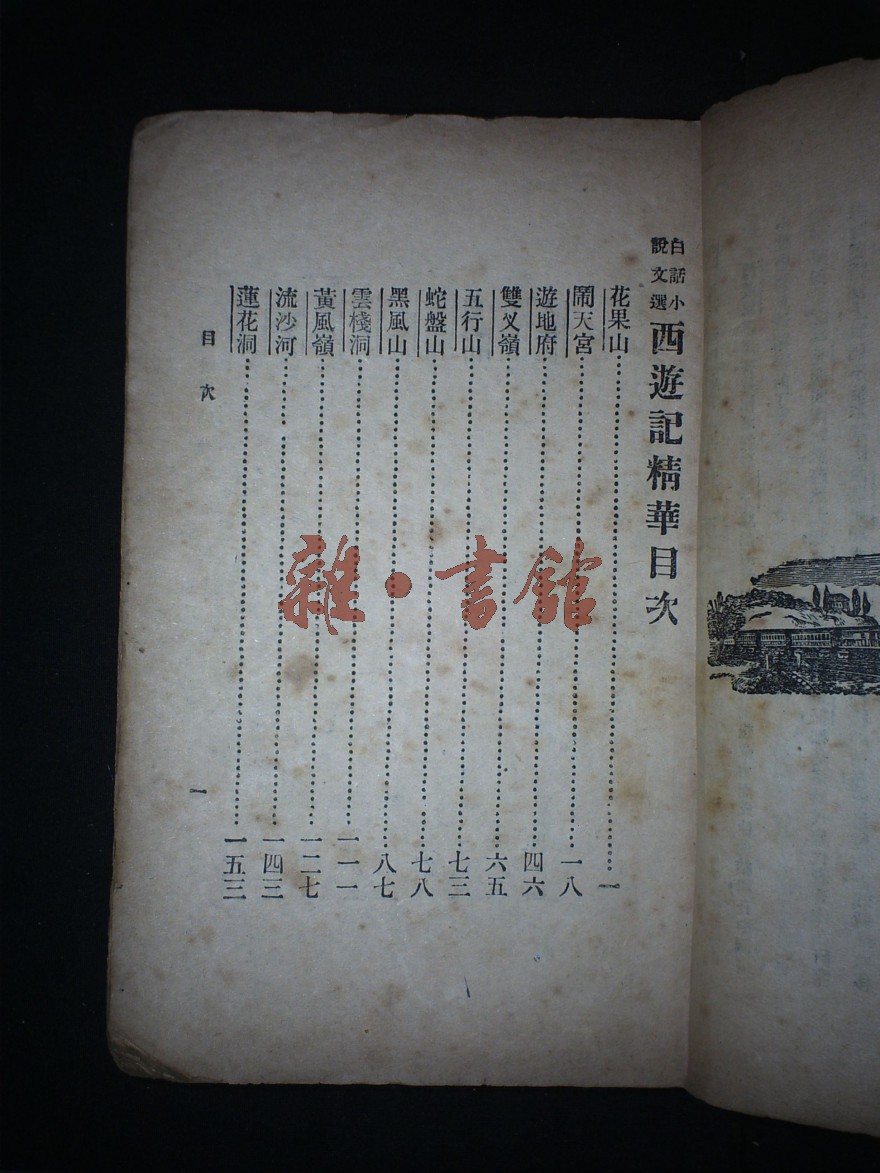 白話小說文選 西遊記精華目次
花果山……一
鬧天宮……一八
遊地府……四六
雙叉嶺……六五
五行山……七三
蛇盤山……七八
黑風山……八七
雲棧洞……一一一
黃風嶺……一二七
流沙河……一四三
蓮花洞……一五三
目次
一
雜·書館